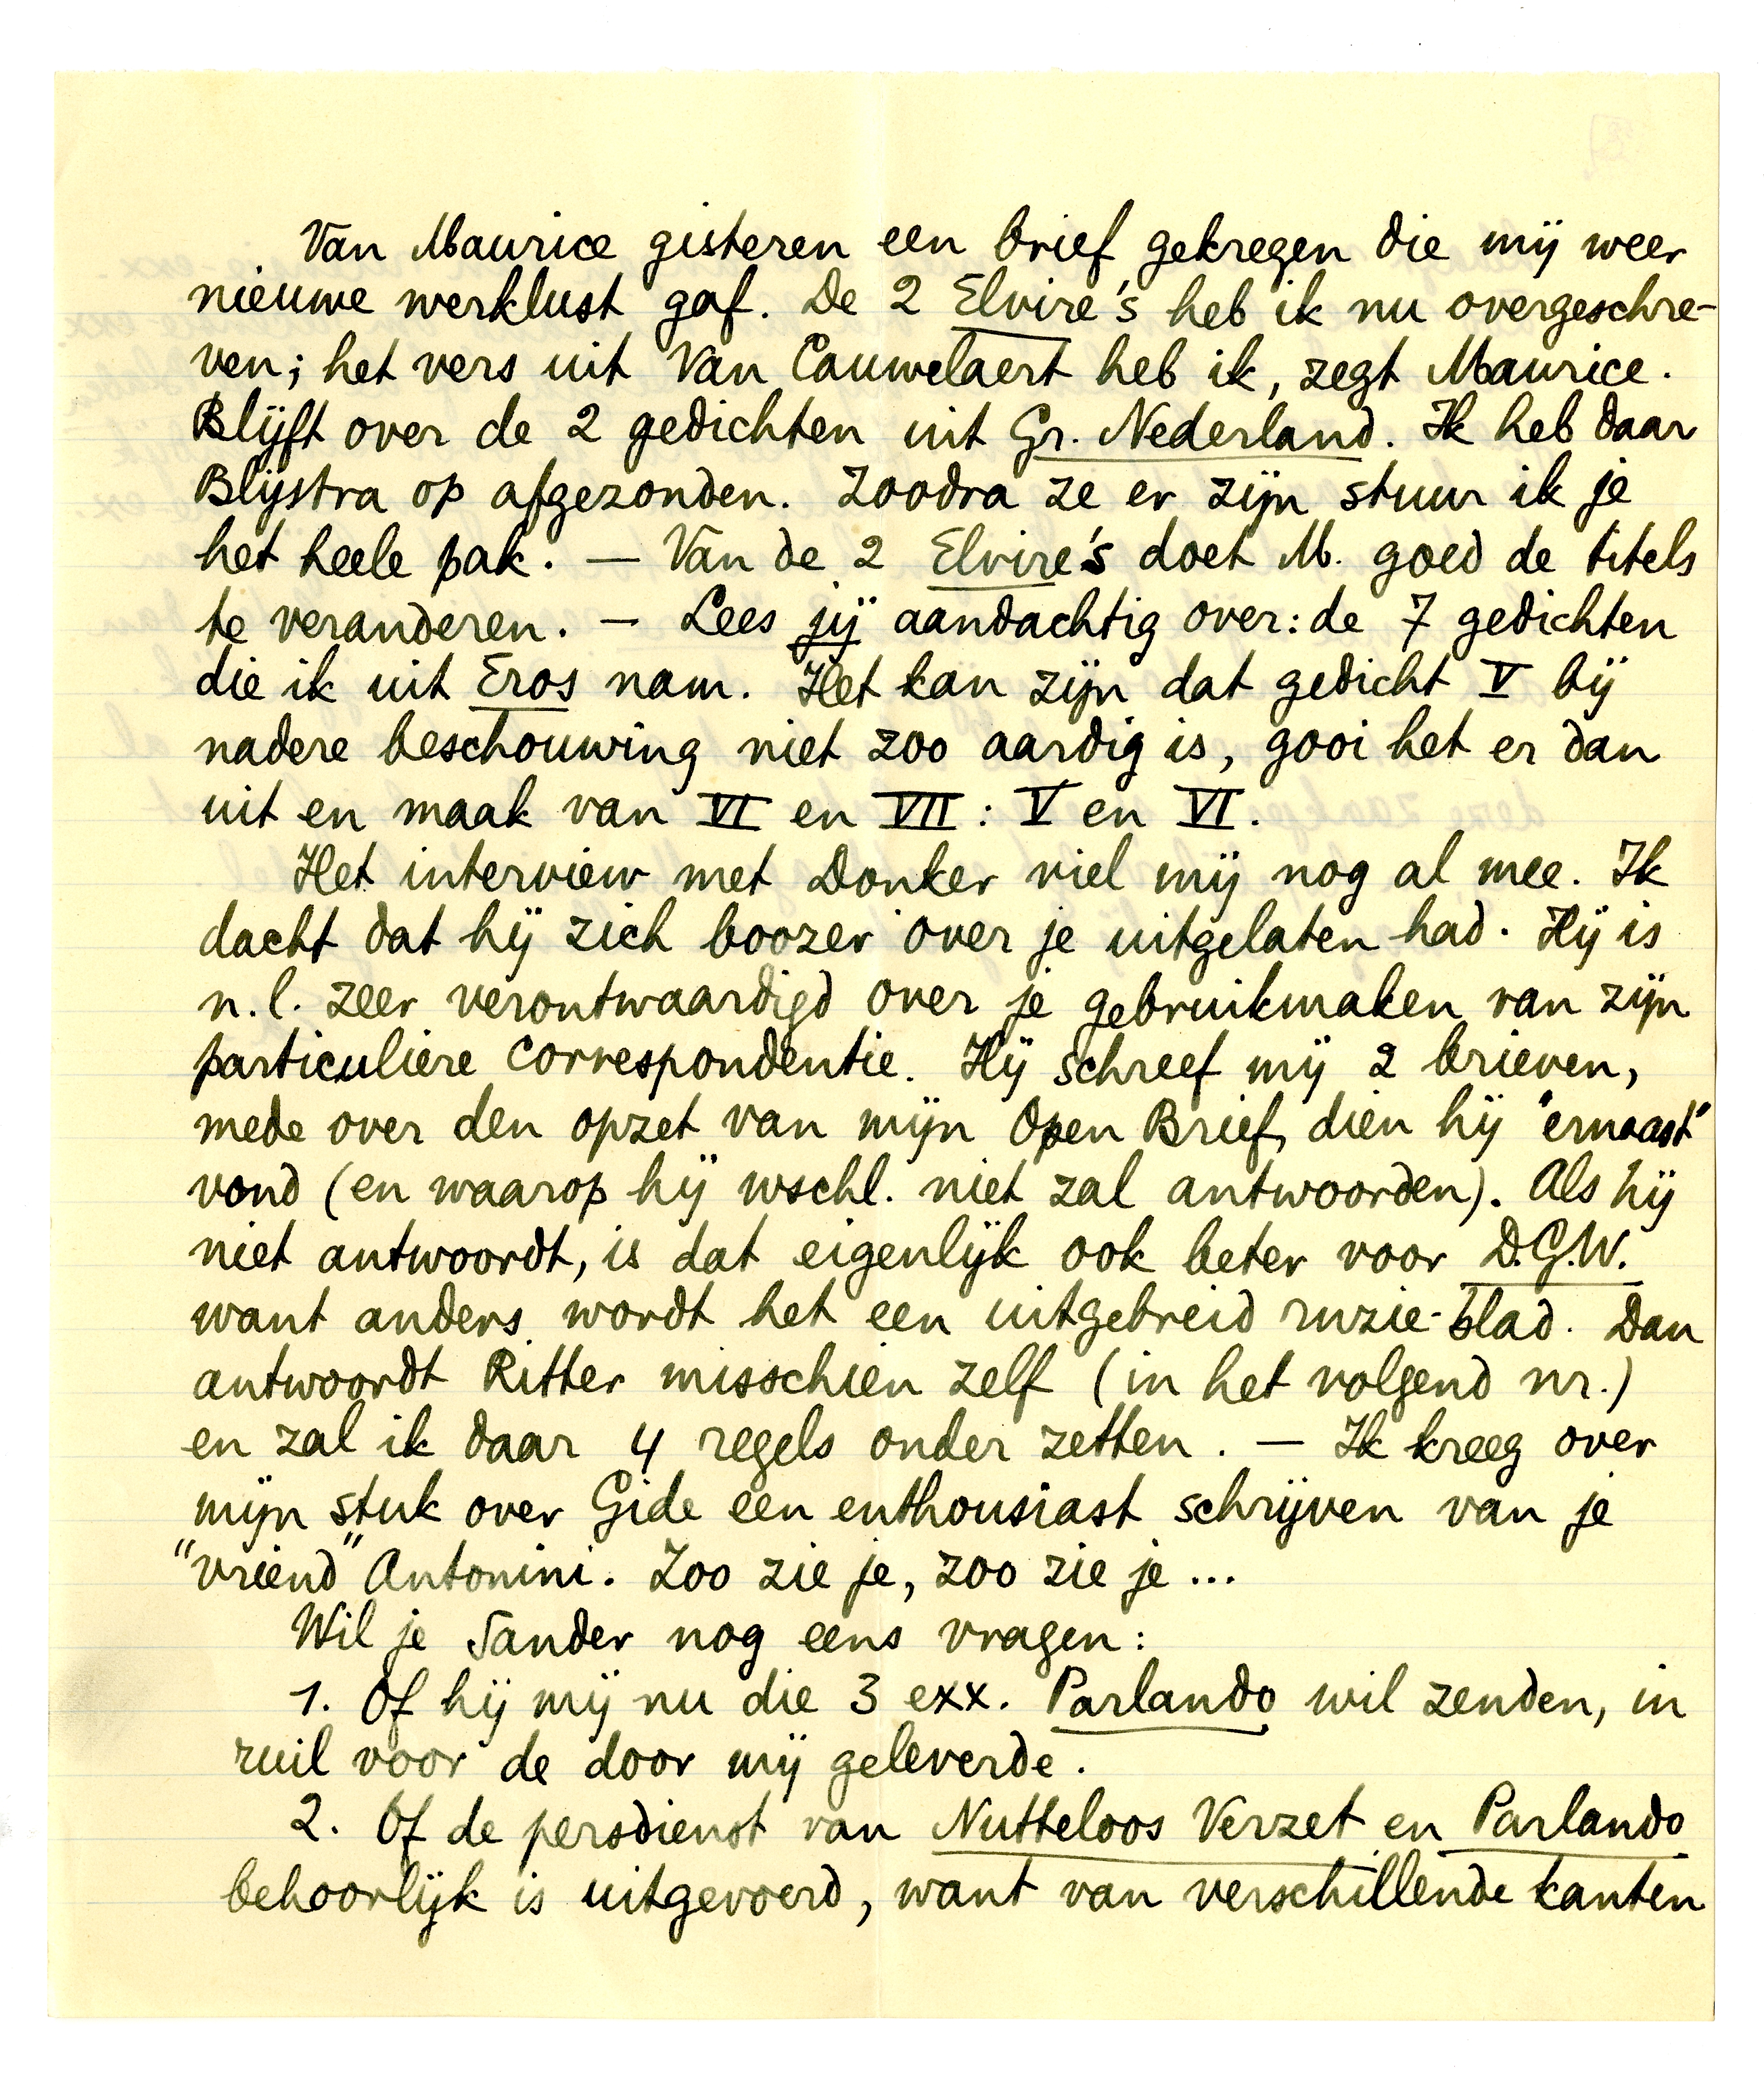 Van Maurice gisteren een brief gekregen die mij weer
nieuwe werklust gaf. De 2 Elvire's heb ik nu overgeschre-
ven; het vers uit Van Cauwelaert heb ik, zegt Maurice.
Blijft over de 2 gedichten uit Gr. Nederland. Ik heb daar
Blijstra op afgezonden. Zoodra ze er zijn stuur ik je
het heele pak. — Van de 2 Elvire's doet M. goed de titels
te veranderen. — Lees jij aandachtig over: de 7 gedichten
die ik uit Eros nam. Het kan zijn dat gedicht V bij
nadere beschouwing niet zoo aardig is, gooi het er dan
uit en maak van VI en VII: V en VI.
Het interview met Donker viel mij nog al mee. Ik
dacht dat hij zich boozer over je uitgelaten had. Hij is
n.l. zeer verontwaardigd over je gebruikmaken van zijn
particuliere correspondentie. Hij schreef mij 2 brieven,
mede over den opzet van mijn Open Brief, dien hij "ernaast"
vond (en waarop hij wschl. niet zal antwoorden). Als hij
niet antwoordt, is dat eigenlijk ook beter voor D.G.W.
want anders wordt het een uitgebreid ruzie-blad. Dan
antwoordt Ritter misschien zelf (in het volgend nr.)
en zal ik daar 4 regels onder zetten. — Ik kreeg over
mijn stuk over Gide een enthousiast schrijven van je
"vriend" Antonini. Zoo zie je, zoo zie je...
Wil je Sander nog eens vragen:
1. Of hij mij nu die 3 exx. Parlando wil zenden, in
ruil voor de door mij geleverde.
2. Of de persdienst van Nutteloos Verzet en Parlando
behoorlijk is uitgevoerd, want van verschillende kanten